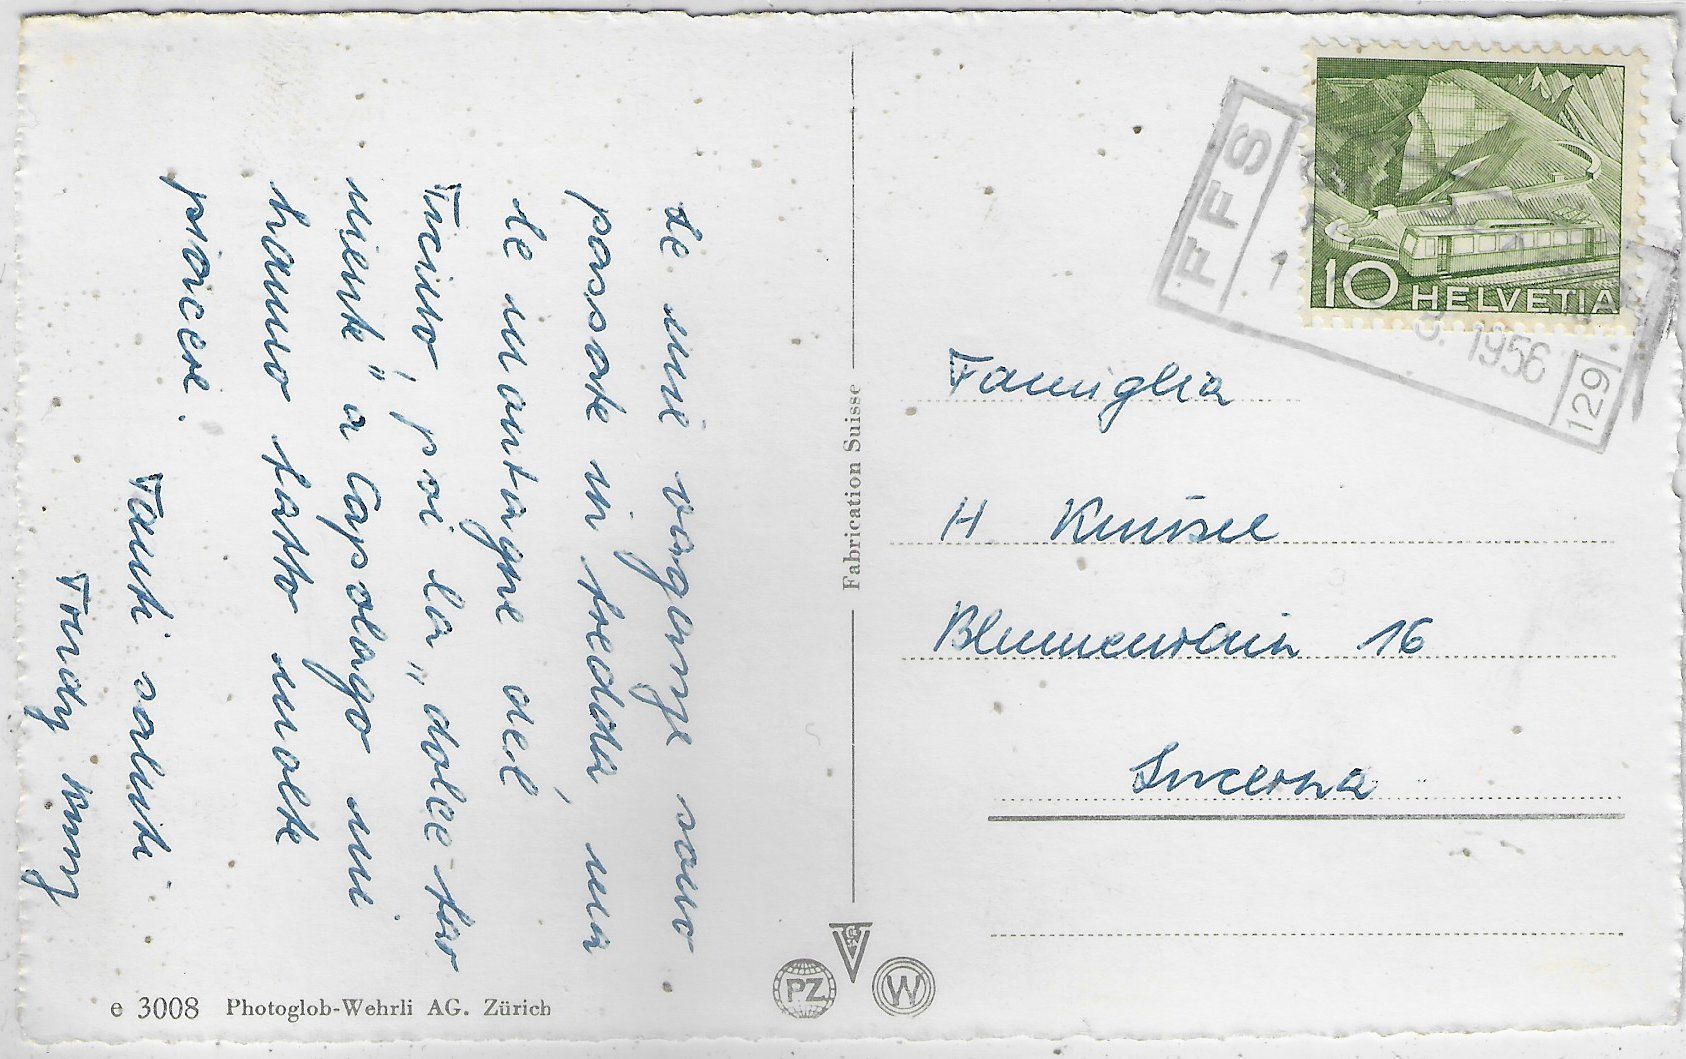 le mie vaganze sono
passate in fredda, ma
le montagne del
Ticino, poi la „dolce far
niente" a Capolago mi
hanno fatto molte
piacere.
Tanti saluti
Trudy
e 3008 Photoglob-Wehrli AG. Zürich
Fabrication Suisse
PZ
W
10 HELVETIA
FFS
1956
129
Famiglia
H Knüsel
Blumenrain 16
Lucerna